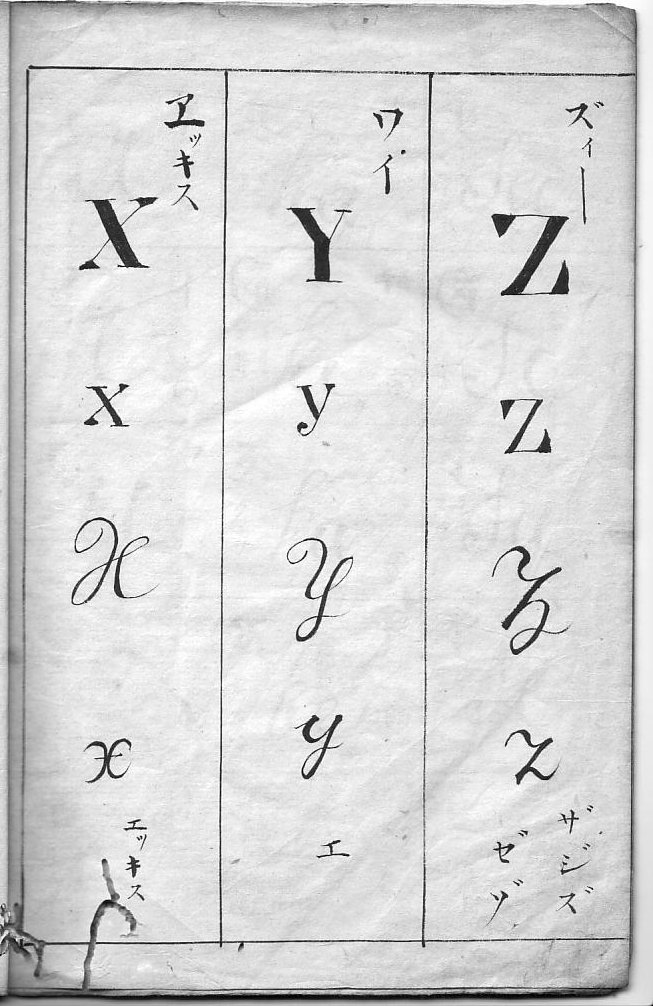 ヱッキス
X
x
X
x
エッキス
ワイ
Y
y
Y
y
エ
ズィー
Z
z
Z
z
ザジズ
ゼゾ